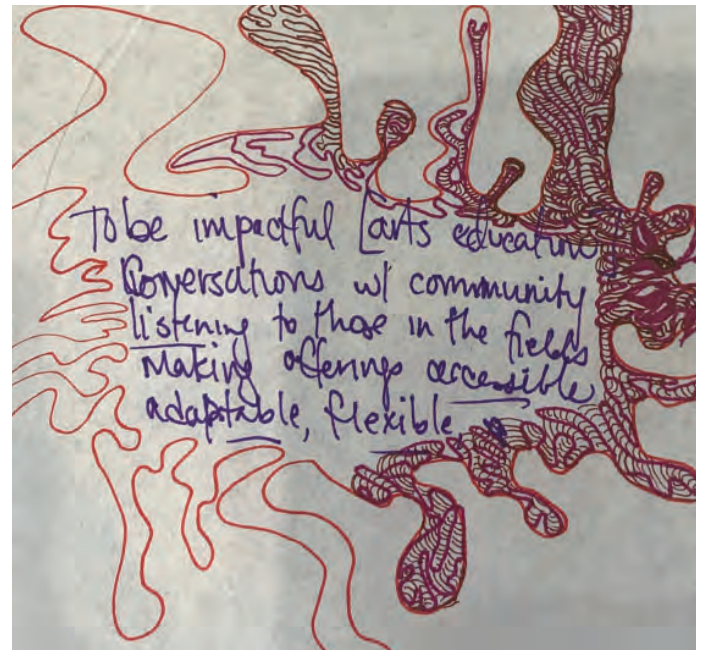 To be impactful [arts education]
Conversations w/ community
listening to those in the fields
Making offerings accessible
adaptable, flexible,